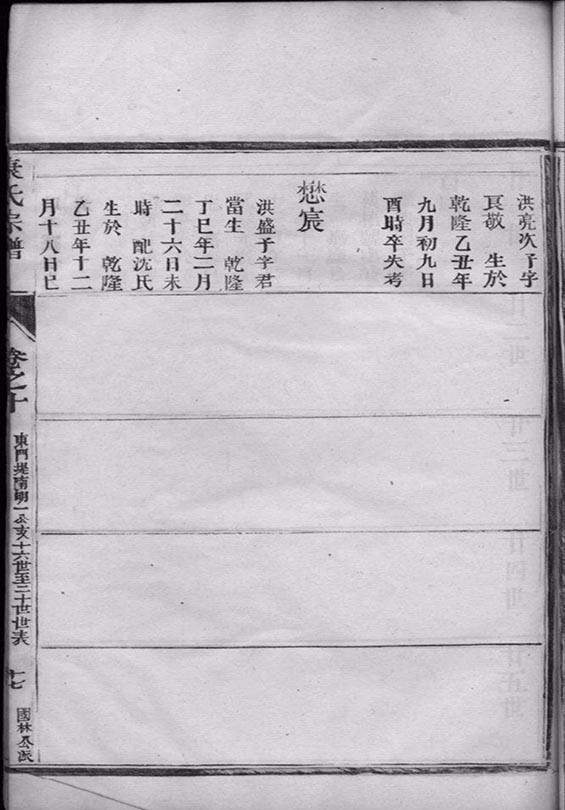 洪亮次子字
㐮敬 生於
乾隆乙丑年
九月初九日
酉時卒失考
懋宸
洪盛子字君
當生 乾隆
丁巳年二月
二十六日未
時 配沈氏
生於 乾隆
乙丑年十二
月十八日巳
氏宗譜
卷之十
東門堤南明一公亥十六世至二十世世表
十七
國林公派